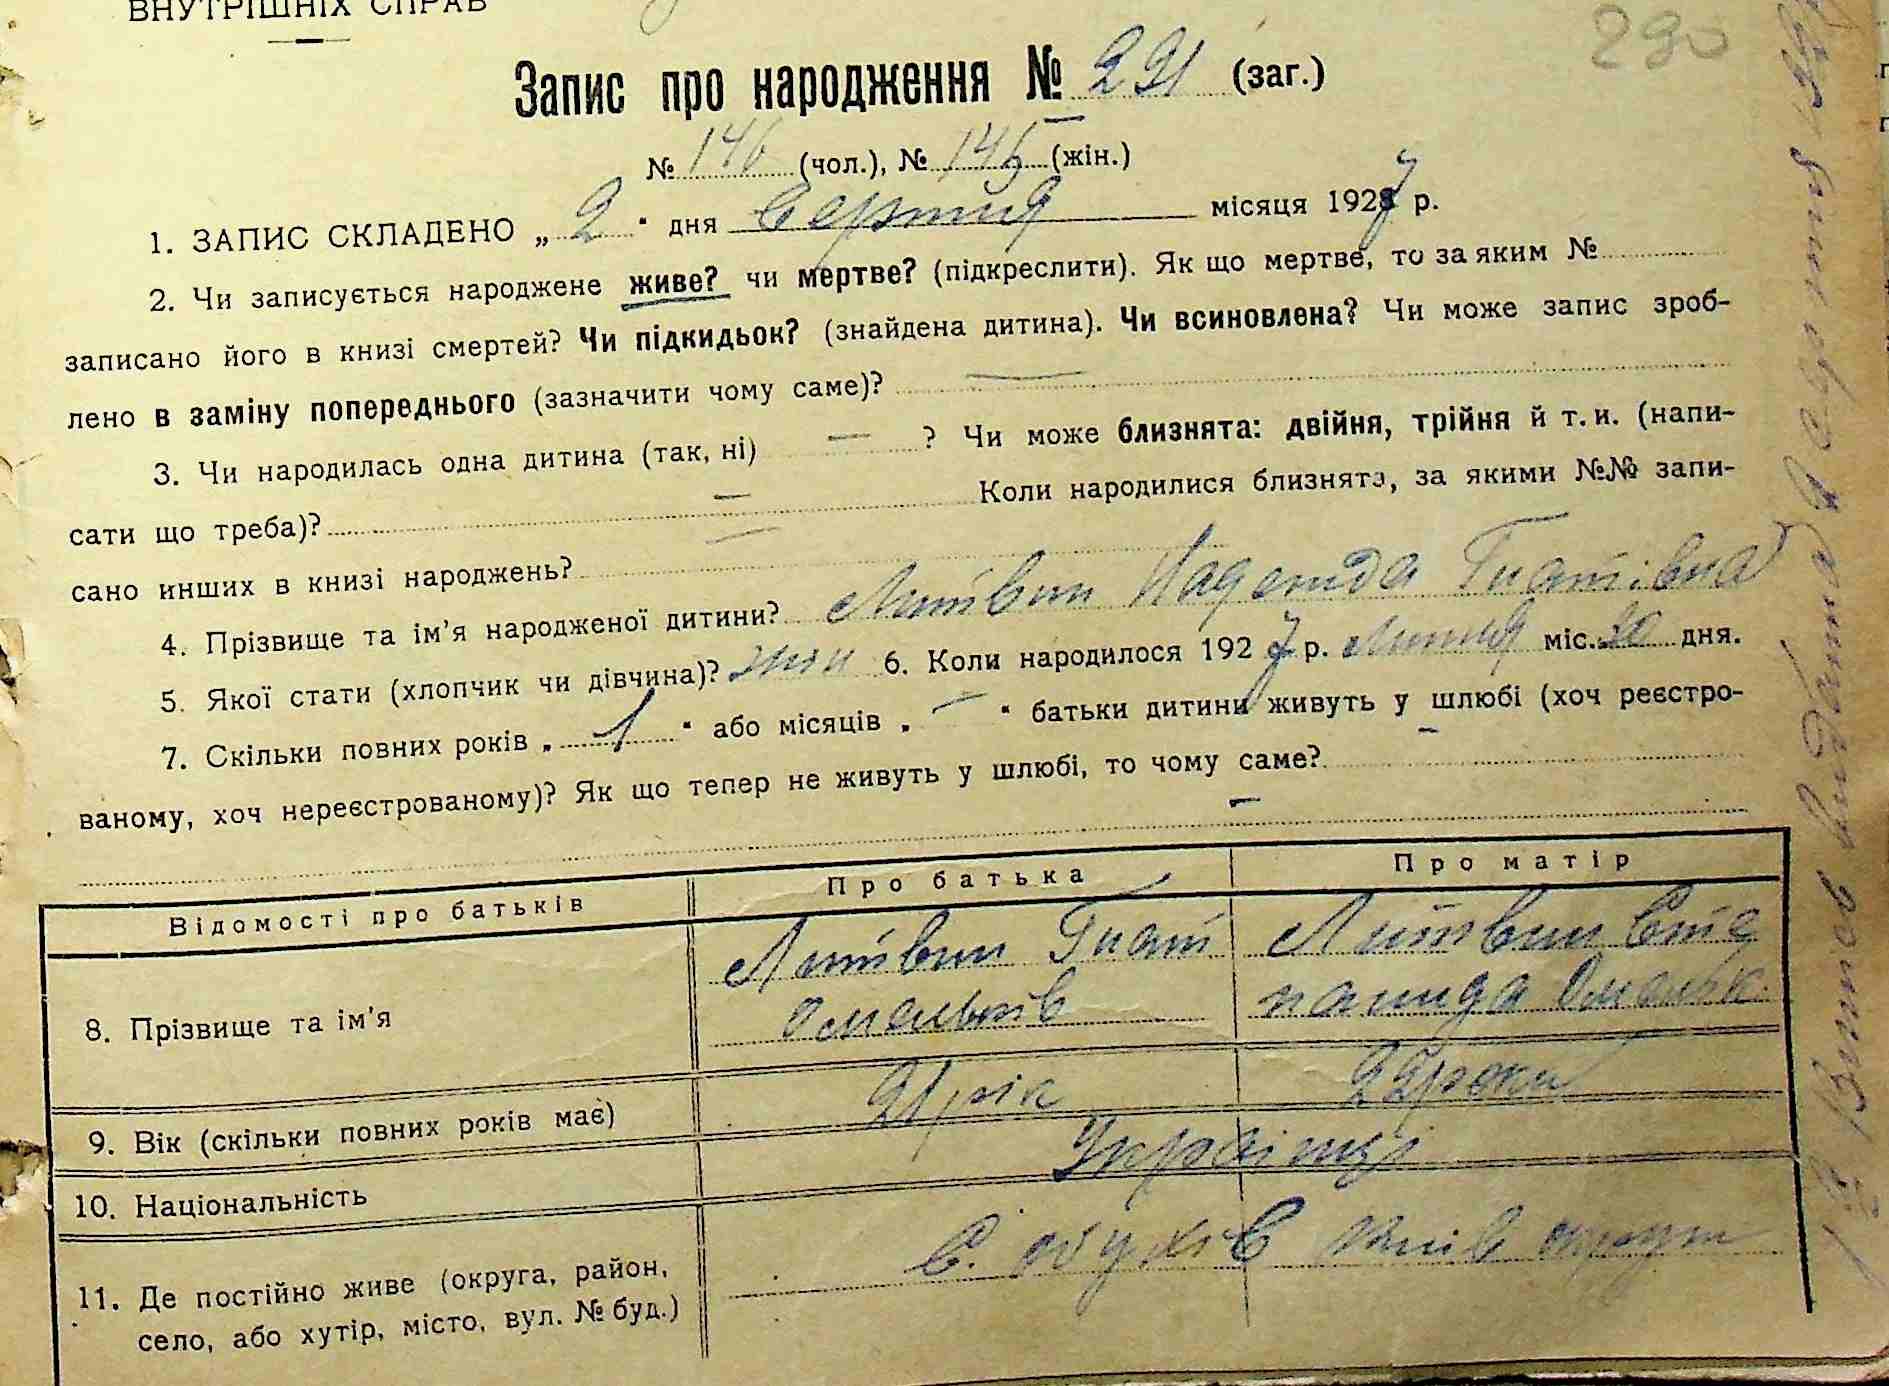 ВНУТРІШНІХ СПРАВ
290
Запис про народження № 291 (заг.)
№ 146 (чол.), № 145 (жін.)
1. ЗАПИС СКЛАДЕНО „ 2 " дня Серпня місяця 1927 р.
2. Чи записується народжене живе? чи мертве? (підкреслити). Як що мертве, то за яким №
записано його в книзі смертей? Чи підкидьок? (знайдена дитина). Чи всиновлена? Чи може запис зроб-
лено в заміну попереднього (зазначити чому саме)? —
3. Чи народилась одна дитина (так, ні) — ? Чи може близнята: двійня, трійня й т. и. (напи-
сати що треба)? — Коли народилися близнята, за якими №№ запи-
сано инших в книзі народжень? —
4. Прізвище та ім'я народженої дитини? Литвин Надежда Гнатівна
5. Якої стати (хлопчик чи дівчина)? жін 6. Коли народилося 1927 р. Липня міс. 30 дня.
7. Скільки повних років „ 1 " або місяців „ — " батьки дитини живуть у шлюбі (хоч реєстро-
ваному, хоч нереєстрованому)? Як що тепер не живуть у шлюбі, то чому саме? —
—
Відомості про батьків Про батька Про матір
8. Прізвище та ім'я Литвин Гнат Омельків Литвин Степанида Омельк.
9. Вік (скільки повних років має) 21 рік 22 роки
10. Національність Українці
11. Де постійно живе (округа, район, село, або хутір, місто, вул. № буд.) С. Обухів округи
Витяг видана 2 серпня